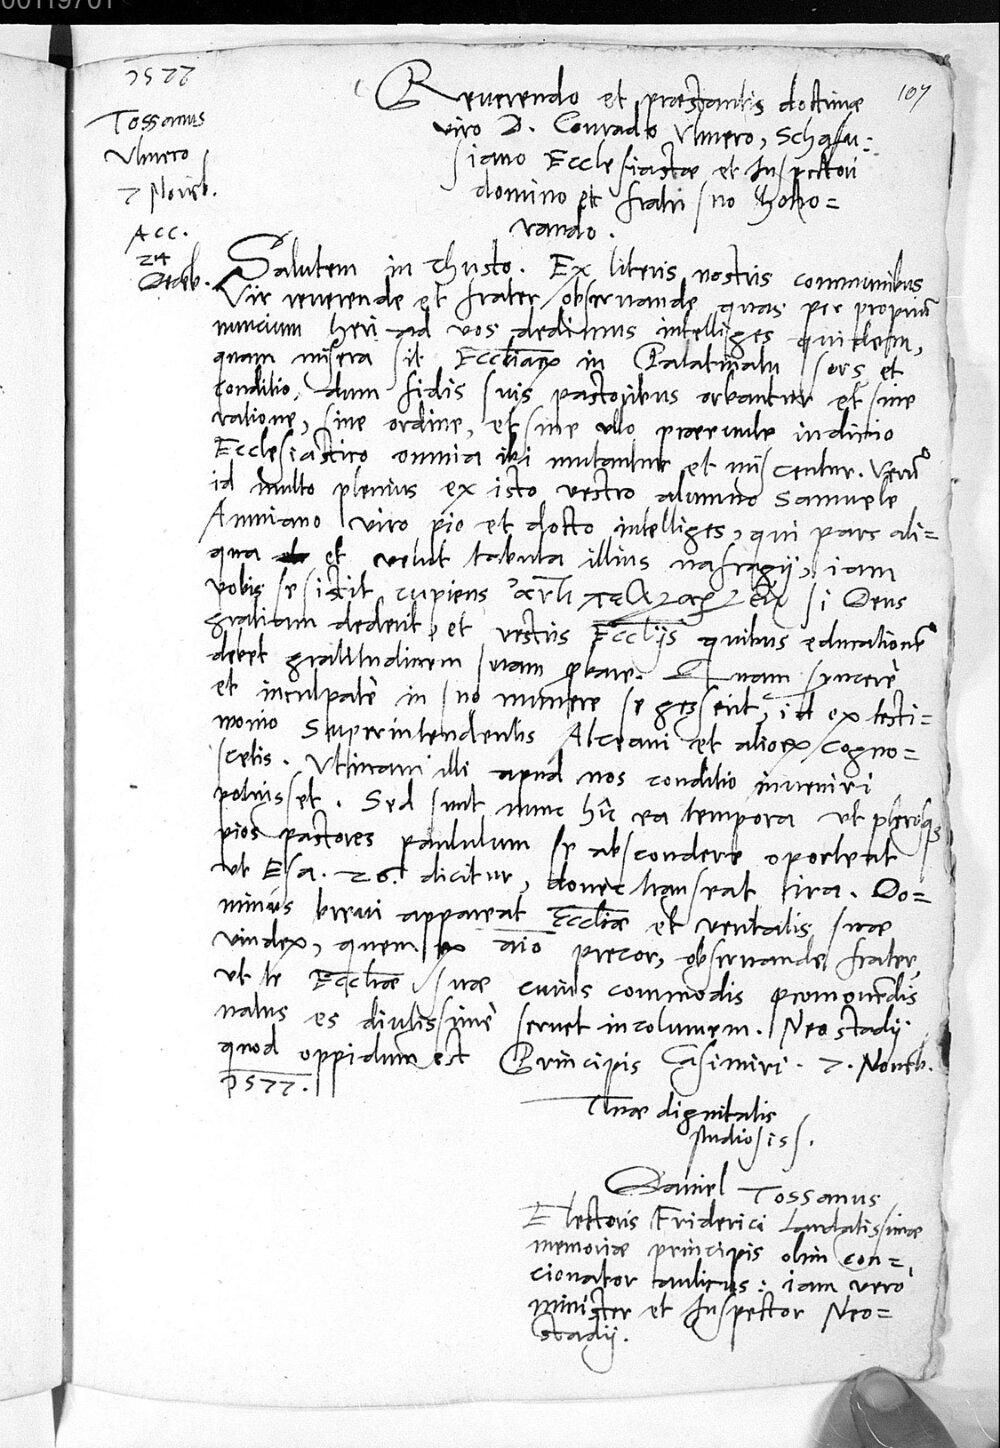 00119701
107
1577
Tossanus
Vlmero
7 Novēb.
Acc.
24
Decēb.
Reuerendo et præstantis doctrinæ
viro D. Conrado Vlmero, Schafu=
siano Ecclesiastæ et Inspectori
domino et fratri suo hono=
rando.
Salutem in Christo. Ex literis nostris communibus
Vir reuerende et frater obseruande quas per propriũ
nuncium heri ad vos dedimus intelliges quidem,
quam misera sit Eccliarꝝ in Palatinatu sors et
conditio, dum fidis suis pastoribus orbantur et sine
ratione, sine ordine, et sine vllo præeunte iudicio
Ecclesiastico omnia ibi mutantur et miscentur. Verũ
id multo plenius ex isto vestro alumno Samuele
Anniano viro pio et docto intelliges, qui pars ali=
qua et velut tabula illius nafragij, iam
vobis se sistit cupiens si Deus
gratiam dederit, et vestris Ecclijs quibus educationẽ
debet gratitudinem suam ꝓbare. Quam syncerè
et inculpatè in suo munere se gesserit, id ex testi=
monio Superintendentis Alceani et aliorꝝ cogno=
scetis. Vtinam illi apud nos conditio inueniri
potuisset. Sed sunt nunc hîc ea tempora vt plerosqꝫ
pios pastores paululum se abscondere oporteat
vt Esa. 26. dicitur, donec transeat ira. Do=
minus breui appareat Eccliæ et veritatis suæ
vindex, quem ex aīo precor, obseruande frater,
vt te Eccliæ suæ cuius commodis ꝓmouēdis
natus es diutissimè seruet incolumem. Neostadij
quod oppidum est Principis Casimiri. 7. Nouēb.
1577.
Tuæ dignitatis
studiosiss.
Daniel Tossanus
Electoris Friderici laudatissimæ
memoriæ principis olim con=
cionator aulicus: iam verò
minister et Inspector Neo=
stadij.